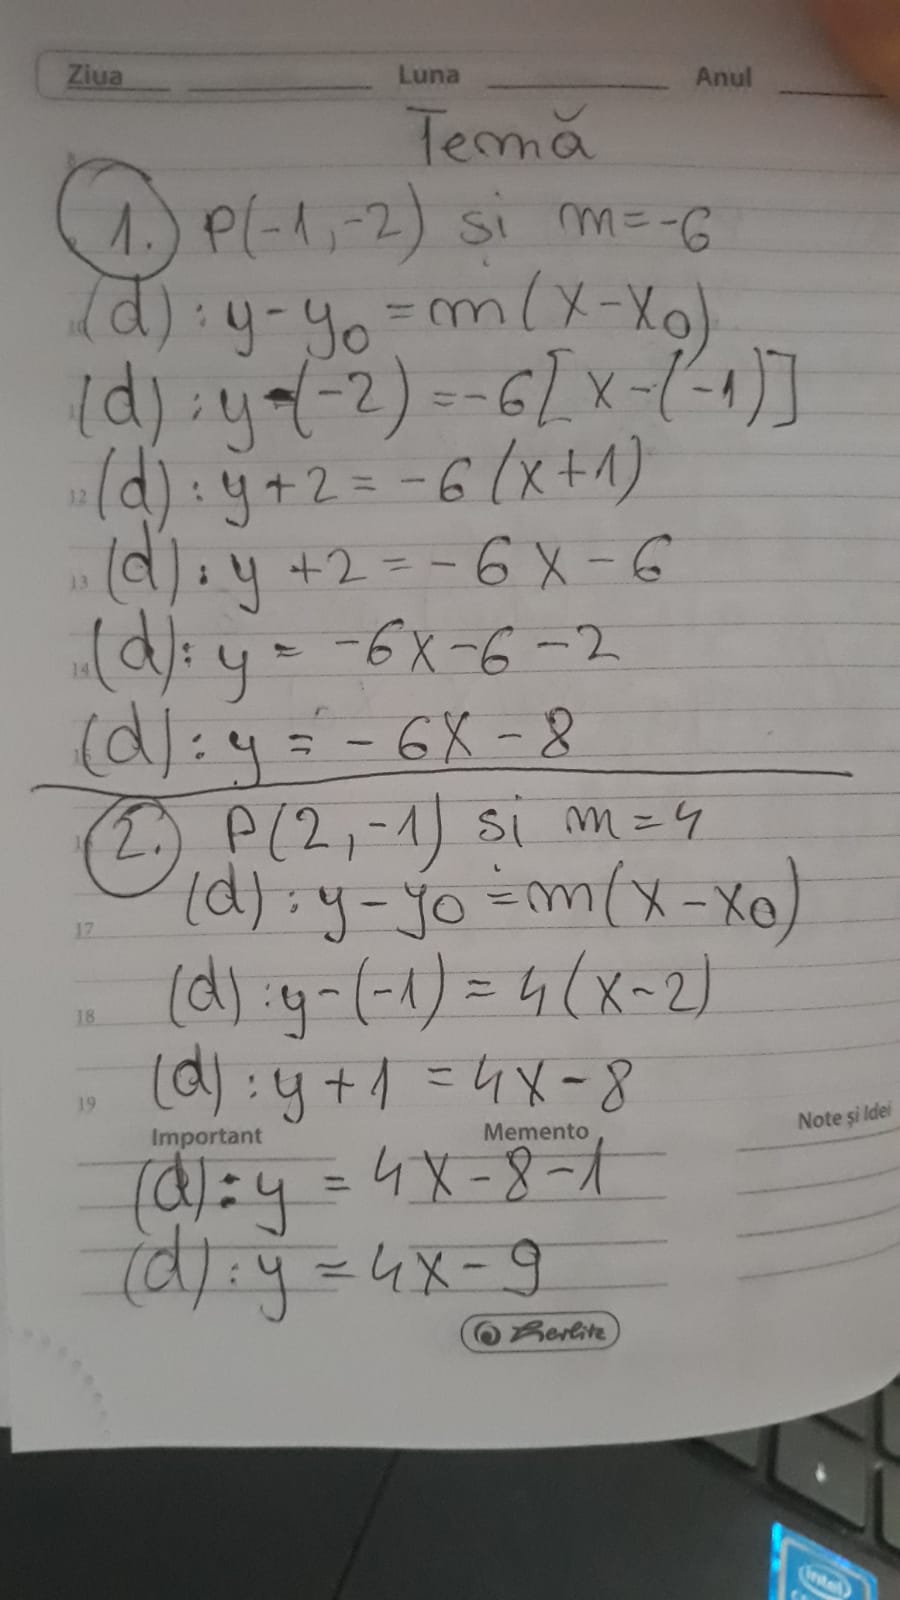 Ziua Luna Anul
Temă
1. P(-1,-2) și m=-6
(d): y-y₀=m(x-x₀)
(d): y-(-2)=-6[x-(-1)]
12 (d): y+2=-6(x+1)
13 (d): y+2=-6x-6
14 (d): y=-6x-6-2
(d): y=-6x-8
2. P(2,-1) și m=4
(d): y-y₀=m(x-x₀)
17
(d): y-(-1)=4(x-2)
18
(d): y+1=4x-8
19
Important Memento Note și Idei
(d): y=4x-8-1
(d): y=4x-9
Herlitz
intel